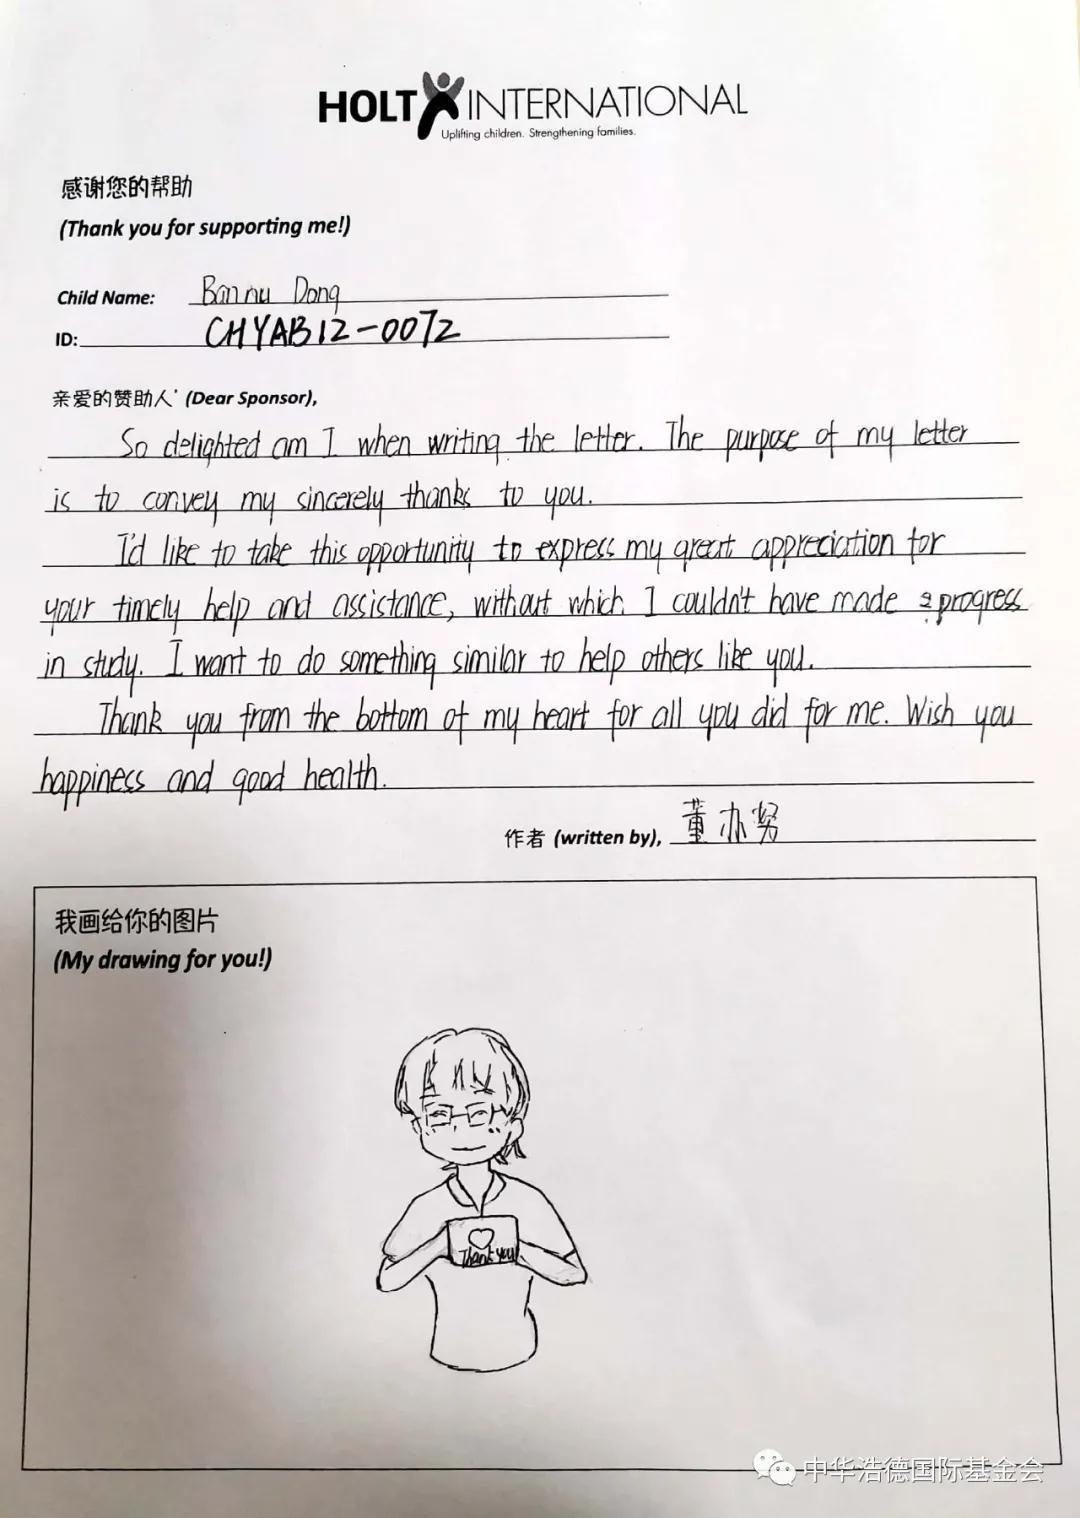 HOLT INTERNATIONAL
Uplifting children. Strengthening families.
感谢您的帮助
(Thank you for supporting me!)
Child Name: Bannu Dong
ID: CHYAB12-0072
亲爱的赞助人, (Dear Sponsor),
So delighted am I when writing the letter. The purpose of my letter
is to convey my sincerely thanks to you.
I'd like to take this opportunity to express my great appreciation for
your timely help and assistance, without which I couldn't have made progress
in study. I want to do something similar to help others like you.
Thank you from the bottom of my heart for all you did for me. Wish you
happiness and good health.
作者 (written by), 董办努
我画给你的图片
(My drawing for you!)
Thank you
中华浩德国际基金会